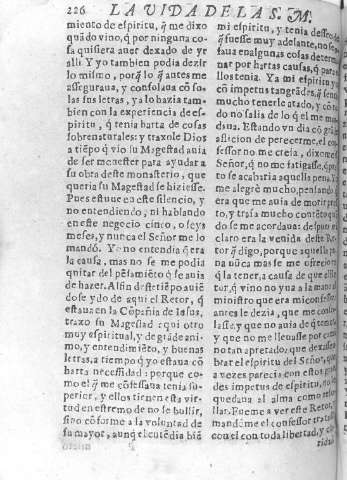 226 LA VIDA DE LA S. M.
miento de espiritu, q̃ me dixo
quãdo vino, q̃ por ninguna co-
sa quisiera auer dexado de yr
alli. Y yo tambien podia dezir
lo mismo, porq̃ lo q̃ antes me
asseguraua, y consolaua cõ so-
las sus letras, ya lo hazia tam-
bien con la experiencia de es-
piritu, q̃ tenia harta de cosas
sobrenaturales: y traxole Dios
a tiẽpo q̃ vio su Magestad auia
de ser menester para ayudar a
su obra deste monasterio, que
queria su Magestad se hiziesse.
Pues estuue en este silencio, y
no entendiendo, ni hablando
en este negocio cinco, o seys
meses, y nunca el Señor me lo
mandó. Yo no entendia q̃ era
la causa, mas no se me podia
quitar del pẽsamiẽto q̃ se auia
de hazer. Al fin deste tiẽpo auiẽ
dose ydo de aqui el Retor, q̃
estaua en la Cõpañia de Iesus,
traxo su Magestad aqui otro
muy espiritual, y de grãde ani-
mo, y entendimiẽto, y buenas
letras, a tiempo q̃ yo estaua cõ
harta necessidad: porque co-
mo el q̃ me cõfessaua tenia su-
perior, y ellos tienen esta vir-
tud en estremo de no se bullir,
sino cõforme a la voluntad de
su mayor, aunq̃ el entẽdia biẽ
mi espiritu, y tenia desseo de
q̃ fuesse muy adelante, no se
saua en algunas cosas determi
nar por hartas causas, q̃ para
llos tenia. Ya mi espiritu
cõ impetus tan grãdes, q̃ sen
mucho tenerle atado, y cõ to
do no salia de lo q̃ el me man
daua. Estando vn dia cõ grã
afliccion de parecerme, el co
fessor no me creia, dixome
Señor, q̃ no me fatigasse, q̃ p
to se acabaria aquella pena. Y
me alegrè mucho, pensando q̃
era que me auia de morir pres
to, y traia mucho contẽto quã
do se me acordaua: despues
claro era la venida deste Re
tor q̃ digo, porque aquella pe
na nũca mas se me ofrecio
q̃ la tener, a causa de que el Re
tor, q̃ vino no yua a la mano al
ministro que era mi confessor
antes le dezia, que me conso
lasse, y que no auia de q̃ temer
y que no me lleuasse por cami
no tan apretado: que dexasse
obrar el espiritu del Señor, que
a vezes parecia con estos gran
des impetus de espiritu, no
quedaua al alma como resol
llar. Fueme a ver este Retor,
mandóme el confessor tratas
con el con toda libertad, y
ridad